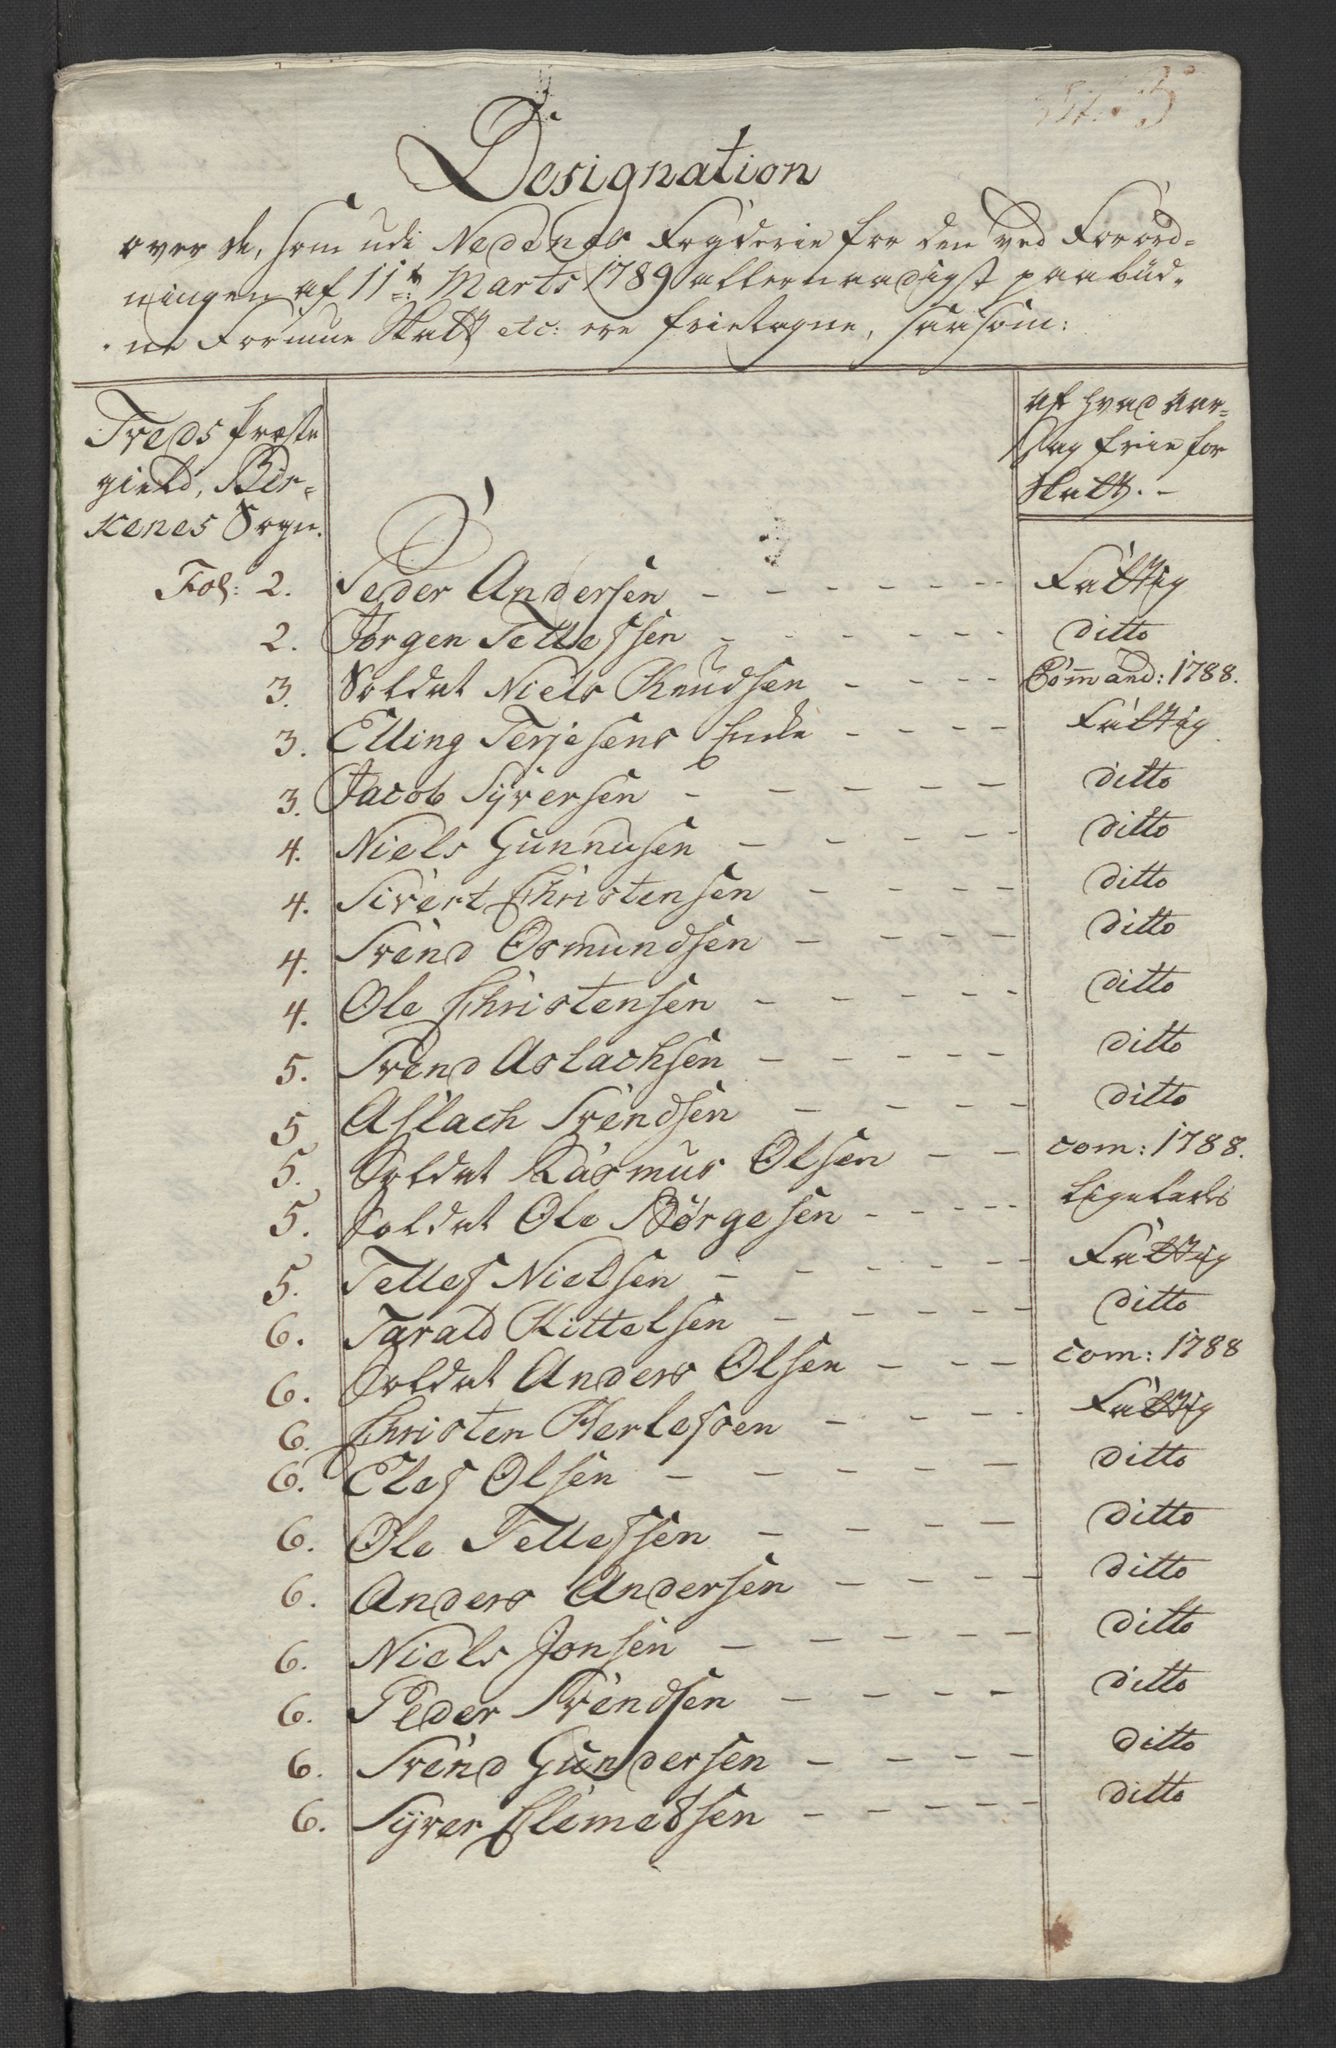 Designation
over de, som udi Nedenes Fogderie for den ved Forord-
ningen af 11te Marts 1789 allernaadigst paabud-
ne Formue Skatt etc: ere frietagne, saasom:
Treds Præste
gield, Bir-
kenes Sogn.
af hvad aar-
sag frie for
Skatt.-
Fol: 2. Peder Andersen - - - - - - Fattig
2. Jørgen Tellefsen - - - - - - ditto
3. Soldat Niels Knudsen - - - - Command: 1788.
3. Elling Terjesens Enke - - - - Fattig
3. Jacob Syversen - - - - - ditto
4. Niels Gunnusen - - - - ditto
4. Sivert Christensen - - - - ditto
4. Svend Osmundsen - - - - ditto
4. Ole Christensen - - - - ditto
5. Svend Aslachsen - - - - ditto
5 Aslach Svendsen - - - - ditto
5. Soldat Rasmus Olsen - - com: 1788.
5. Soldat Ole Børgesen - - - - - Ligeledes
5. Tellef Nielsen - - - - - Fattig
6. Tarald Kittelsen - - - - - ditto
6. Soldat Anders Olsen - - - com: 1788
6. Christen Herlefsen - - - - Fattig
6. Elef Olsen - - - - - ditto
6. Ole Tellefsen - - - - ditto
6. Anders Andersen - - - - ditto
6. Niels Jonsen - - - - - ditto
6. Peder Svendsen - - - - ditto
6. Svend Gundersen - - - - ditto
6. Syver Clemetsen - - - - - ditto